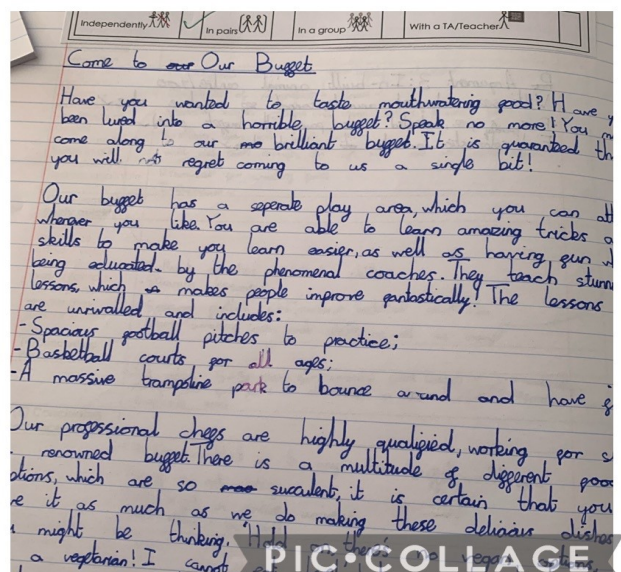 Independently
In pairs
In a group
With a TA/Teacher
Come to our Our Bugget
Have you wanted to taste mouthwatering food? Have
been lured into a horrible bugget? Speak no more! You
come along to our brilliant bugget. It is guaranteed
you will not regret coming to us a single bit!
Our bugget has a seperate play area, which you can
wherever you like. You are able to learn amazing tricks
skills to make you learn easier, as well as having fun
being educated by the phenomenal coaches. They teach
lessons, which makes people improve fantastically! The lessons
are unrivalled and includes:
-Spacious football pitches to practice;
-Basketball courts for all ages;
-A massive trampoline park to bounce around and have
Our professional chefs are highly qualified, working for
renowned bugget. There is a multitude of different
which are so succulent, it is certain that you
it as much as we do making these delicious dishes
might be thinking, "Hold on, there's no vegan options,
a vegetarian! I cannot
PIC COLLAGE